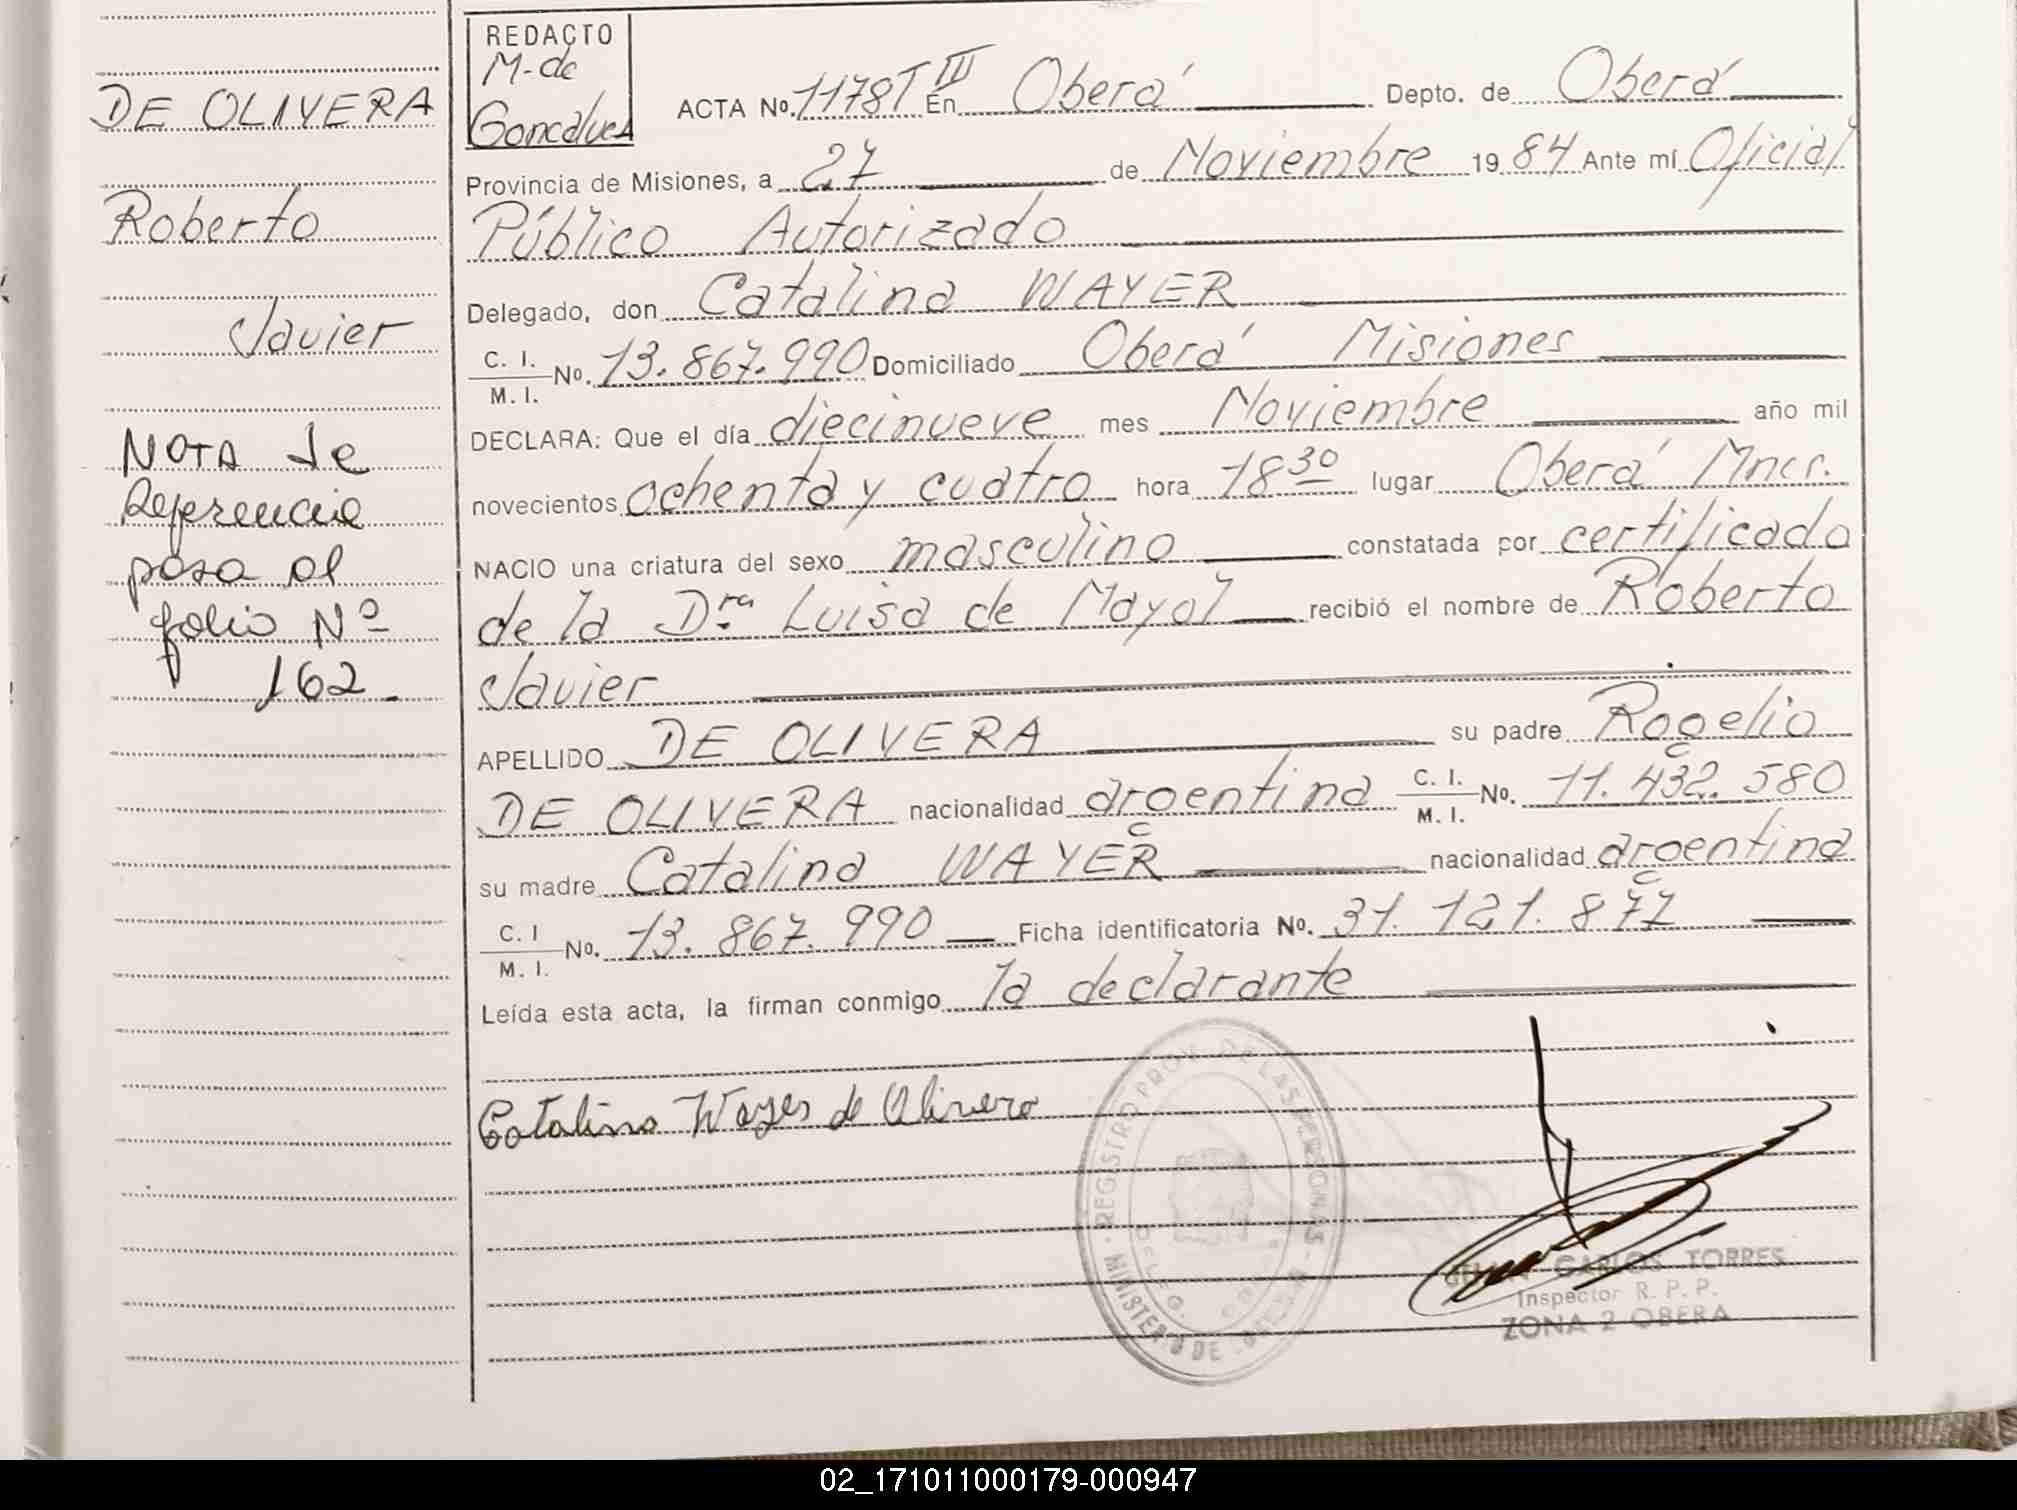 DE OLIVERA
Roberto
Javier
NOTA de
Referencia
pasa al
folio Nº
162.
REDACTO
M. de
Goncalves
ACTA No. 1178 T III En Oberá Depto. de Oberá
Provincia de Misiones, a 27 de Noviembre 19 84 Ante mí Oficial
Público Autorizado
Delegado, don Catalina WAYER
C. I. / M. I. No. 13.867.990 Domiciliado Oberá Misiones
DECLARA: Que el día diecinueve mes Noviembre año mil
novecientos ochenta y cuatro hora 18 30 lugar Oberá Mnes.
NACIO una criatura del sexo masculino constatada por certificado
de la Dra. Luisa de Mayol recibió el nombre de Roberto
Javier
APELLIDO DE OLIVERA su padre Rogelio
DE OLIVERA nacionalidad argentina C. I. / M. I. No. 11.432.580
su madre Catalina WAYER nacionalidad argentina
C. I / M. I. No. 13.867.990 Ficha identificatoria No. 31.121.877
Leída esta acta, la firman conmigo la declarante
Catalina Wayer de Olivera
REGISTRO PROV. DE LAS PERSONAS
MINISTERIO DE
DELEG.
JUAN CARLOS TORRES
Inspector R. P. P.
ZONA 2 OBERA
02_171011000179-000947